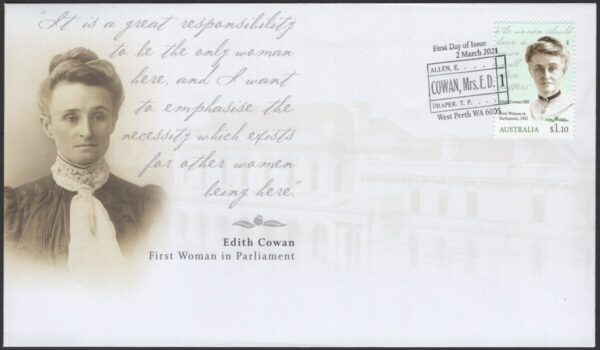 "It is a great responsibility
to be the only woman
here, and I want
to emphasise the
necessity which exists
for other women
being here".
Edith Cowan
First Woman in Parliament
First Day of Issue
2 March 2021
ALLEN, E. . . . .
COWAN, Mrs. E. D. 1
DRAPER. T. P. . . .
West Perth WA 6005
Edith Cowan OBE
First Woman in
Parliament, 1921
AUSTRALIA $1.10